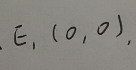 . E, (0,0).